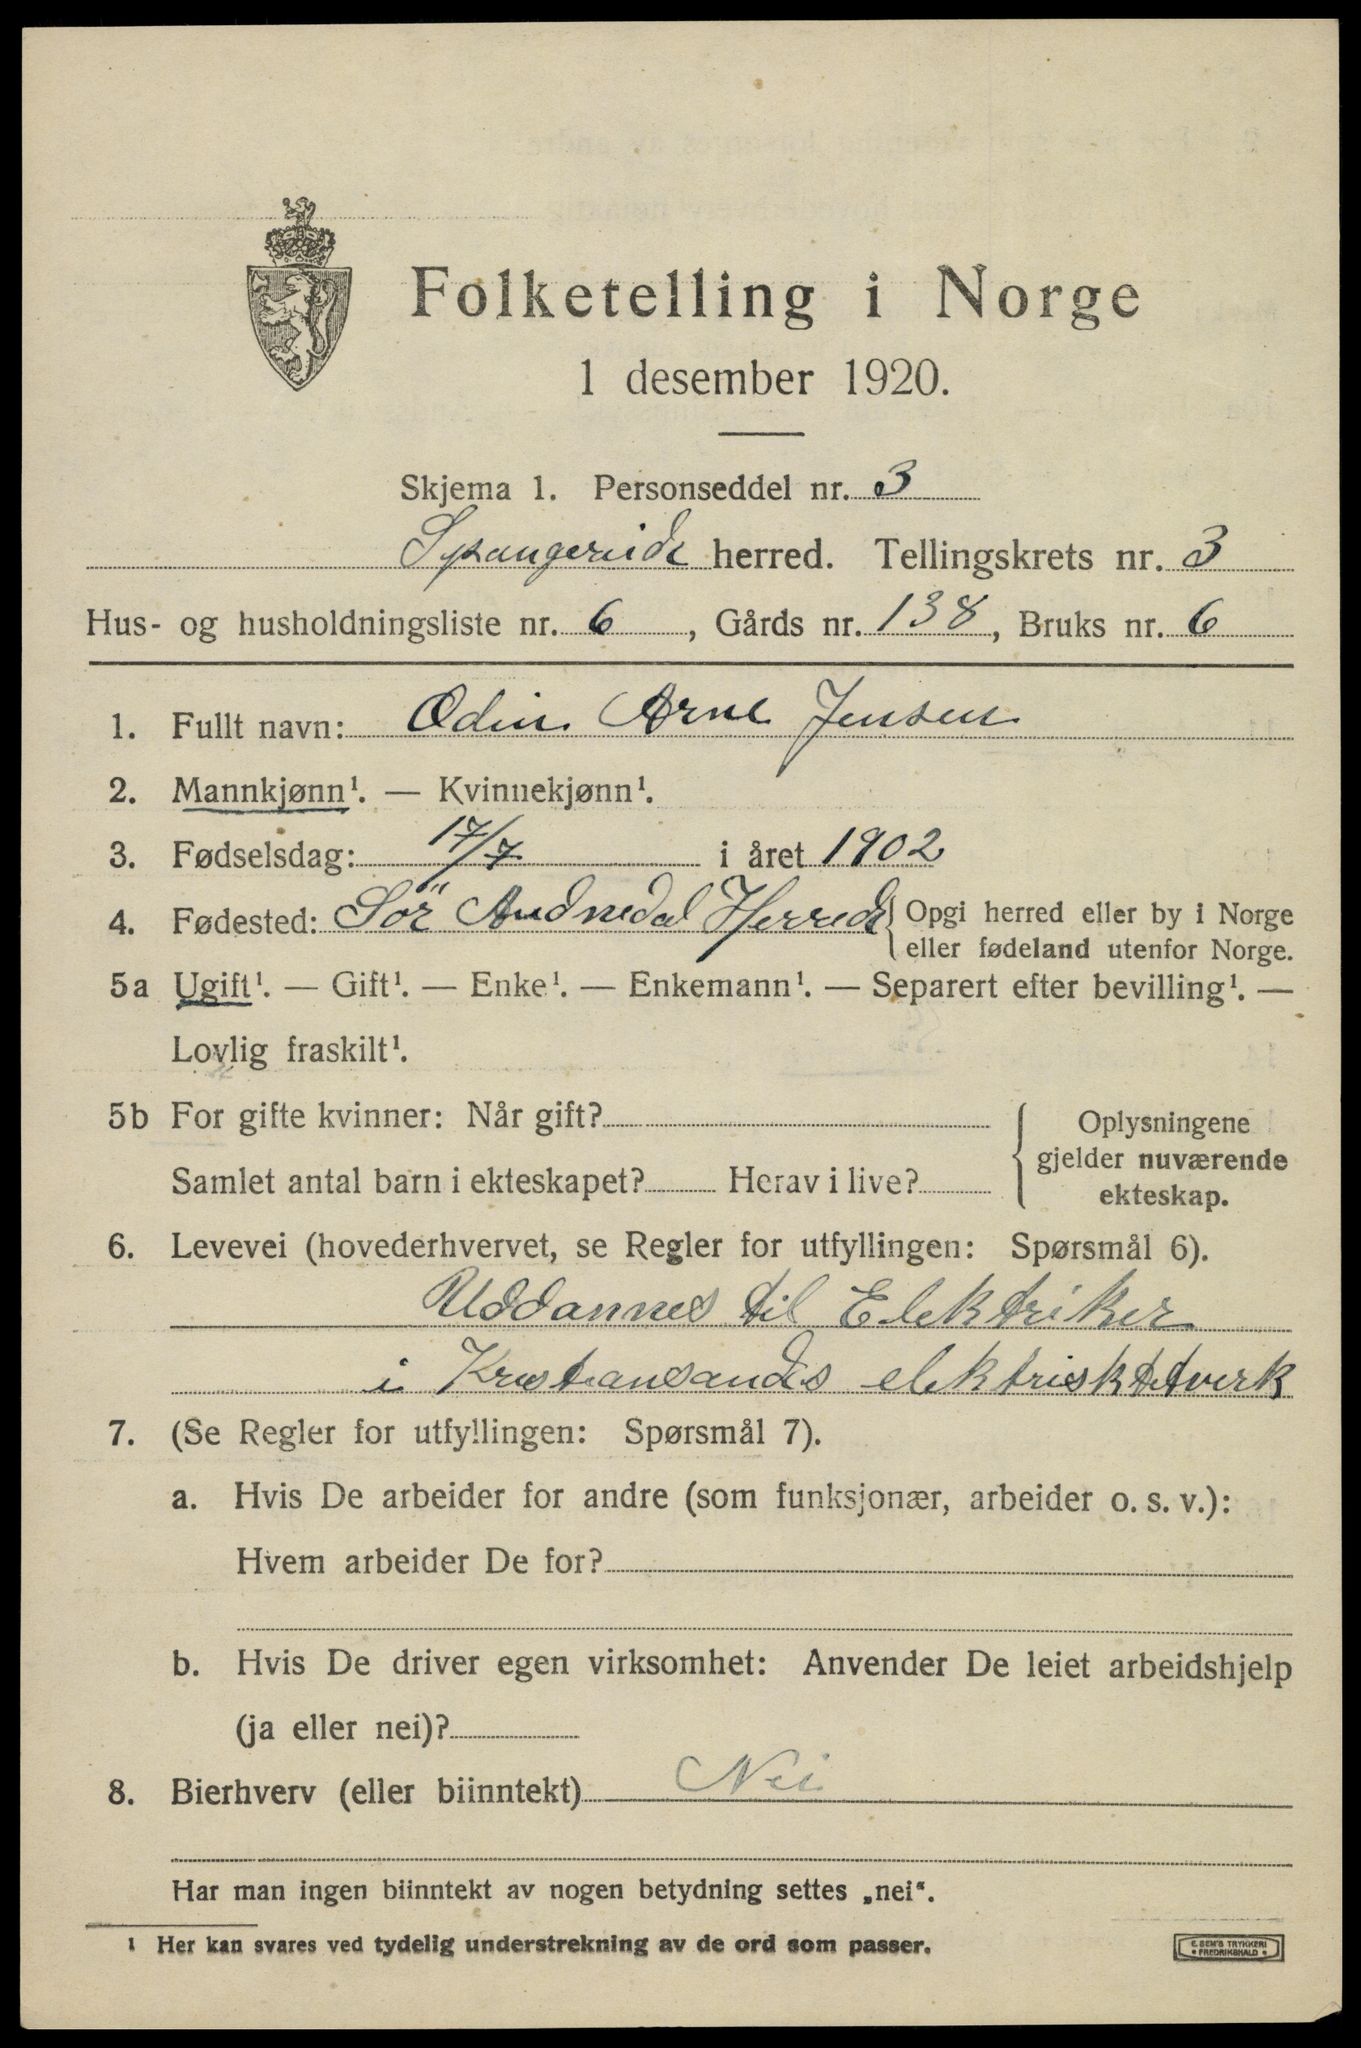 Folketelling i Norge
1 desember 1920.
Skjema 1. Personseddel nr. 3
Spangereid herred. Tellingskrets nr. 3
Hus- og husholdningsliste nr. 6, Gårds nr. 138, Bruks nr. 6
1. Fullt navn: Odin Arne Jensen
2. Mannkjønn¹. — Kvinnekjønn¹.
3. Fødselsdag: 17/7 i året 1902
4. Fødested: Sör Audnedal Herred { Opgi herred eller by i Norge
eller fødeland utenfor Norge.
5a Ugift¹. — Gift¹. — Enke¹. — Enkemann¹. — Separert efter bevilling¹. —
Lovlig fraskilt¹.
5b For gifte kvinner: Når gift?
Samlet antal barn i ekteskapet? Herav i live?
Oplysningene
gjelder nuværende
ekteskap.
6. Levevei (hovederhvervet, se Regler for utfyllingen: Spørsmål 6).
Uddannes til Elektriker
i Kristiansands elektrisktetverk
7. (Se Regler for utfyllingen: Spørsmål 7).
a. Hvis De arbeider for andre (som funksjonær, arbeider o. s. v.):
Hvem arbeider De for?
b. Hvis De driver egen virksomhet: Anvender De leiet arbeidshjelp
(ja eller nei)?
8. Bierhverv (eller biinntekt) Nei
Har man ingen biinntekt av nogen betydning settes „nei“.
¹ Her kan svares ved tydelig understrekning av de ord som passer.
E. SEM'S TRYKKERI
• FREDRIKSHALD •